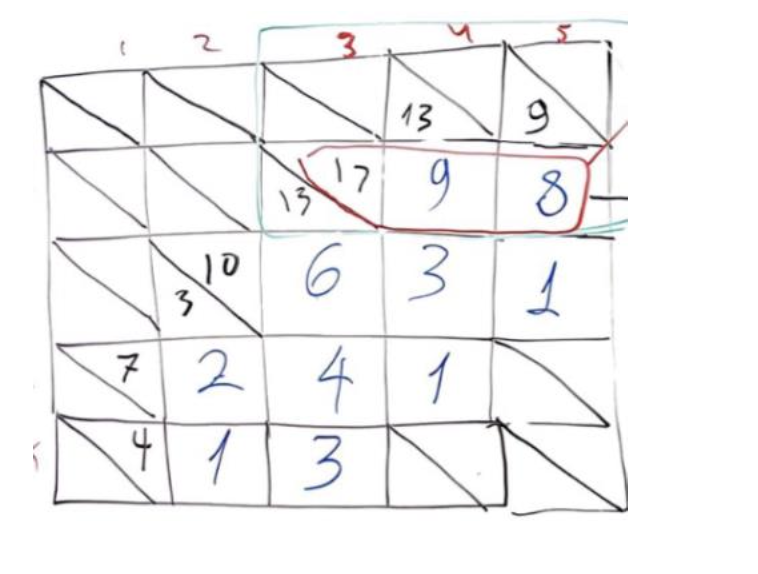 1 2 3 4 5
13 9
13 17 9 8
3 10 6 3 1
7 2 4 1
4 1 3